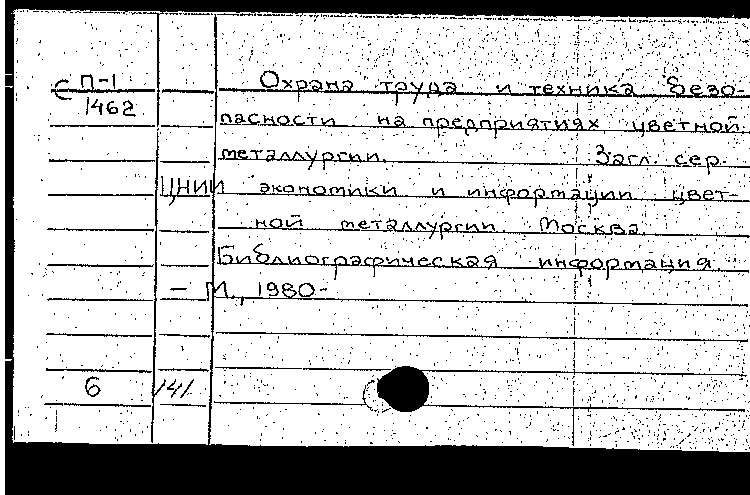 С П-1
1462
Охрана труда и техника безо-
пасности на предприятиях цветной
металлургии. Загл. сер.
ЦНИИ экономики и информации цвет-
ной металлургии. Москва.
Библиографическая информация.
- М., 1980-
6 141